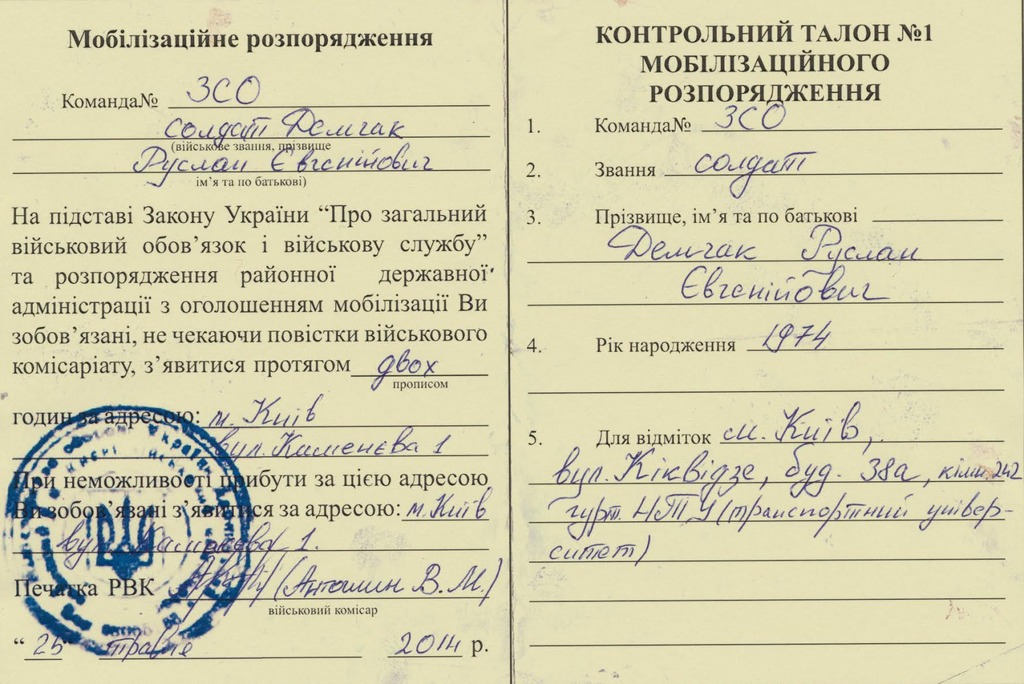 Мобілізаційне розпорядження
Команда№ ЗСО
солдат Демчак
(військове звання, прізвище
Руслан Євгенійович
ім’я та по батькові)
На підставі Закону України “Про загальний
військовий обов’язок і військову службу”
та розпорядження районної державної
адміністрації з оголошенням мобілізації Ви
зобов’язані, не чекаючи повістки військового
комісаріату, з’явитися протягом двох
прописом
годин за адресою: м. Київ
вул. Каменєва 1
При неможливості прибути за цією адресою
Ви зобов’язані з’явитися за адресою: м. Київ
вул. 1.
Печатка РВК (Антошин В.М.)
військовий комісар
“25” травня 2014 р.
КОНТРОЛЬНИЙ ТАЛОН №1
МОБІЛІЗАЦІЙНОГО
РОЗПОРЯДЖЕННЯ
1. Команда№ ЗСО
2. Звання солдат
3. Прізвище, ім’я та по батькові
Демчак Руслан
Євгенійович
4. Рік народження 1974
5. Для відміток м. Київ,
вул. Кіквідзе, буд. 38а, кімн 242
гурт. НТУ (транспортний універ-
ситет)